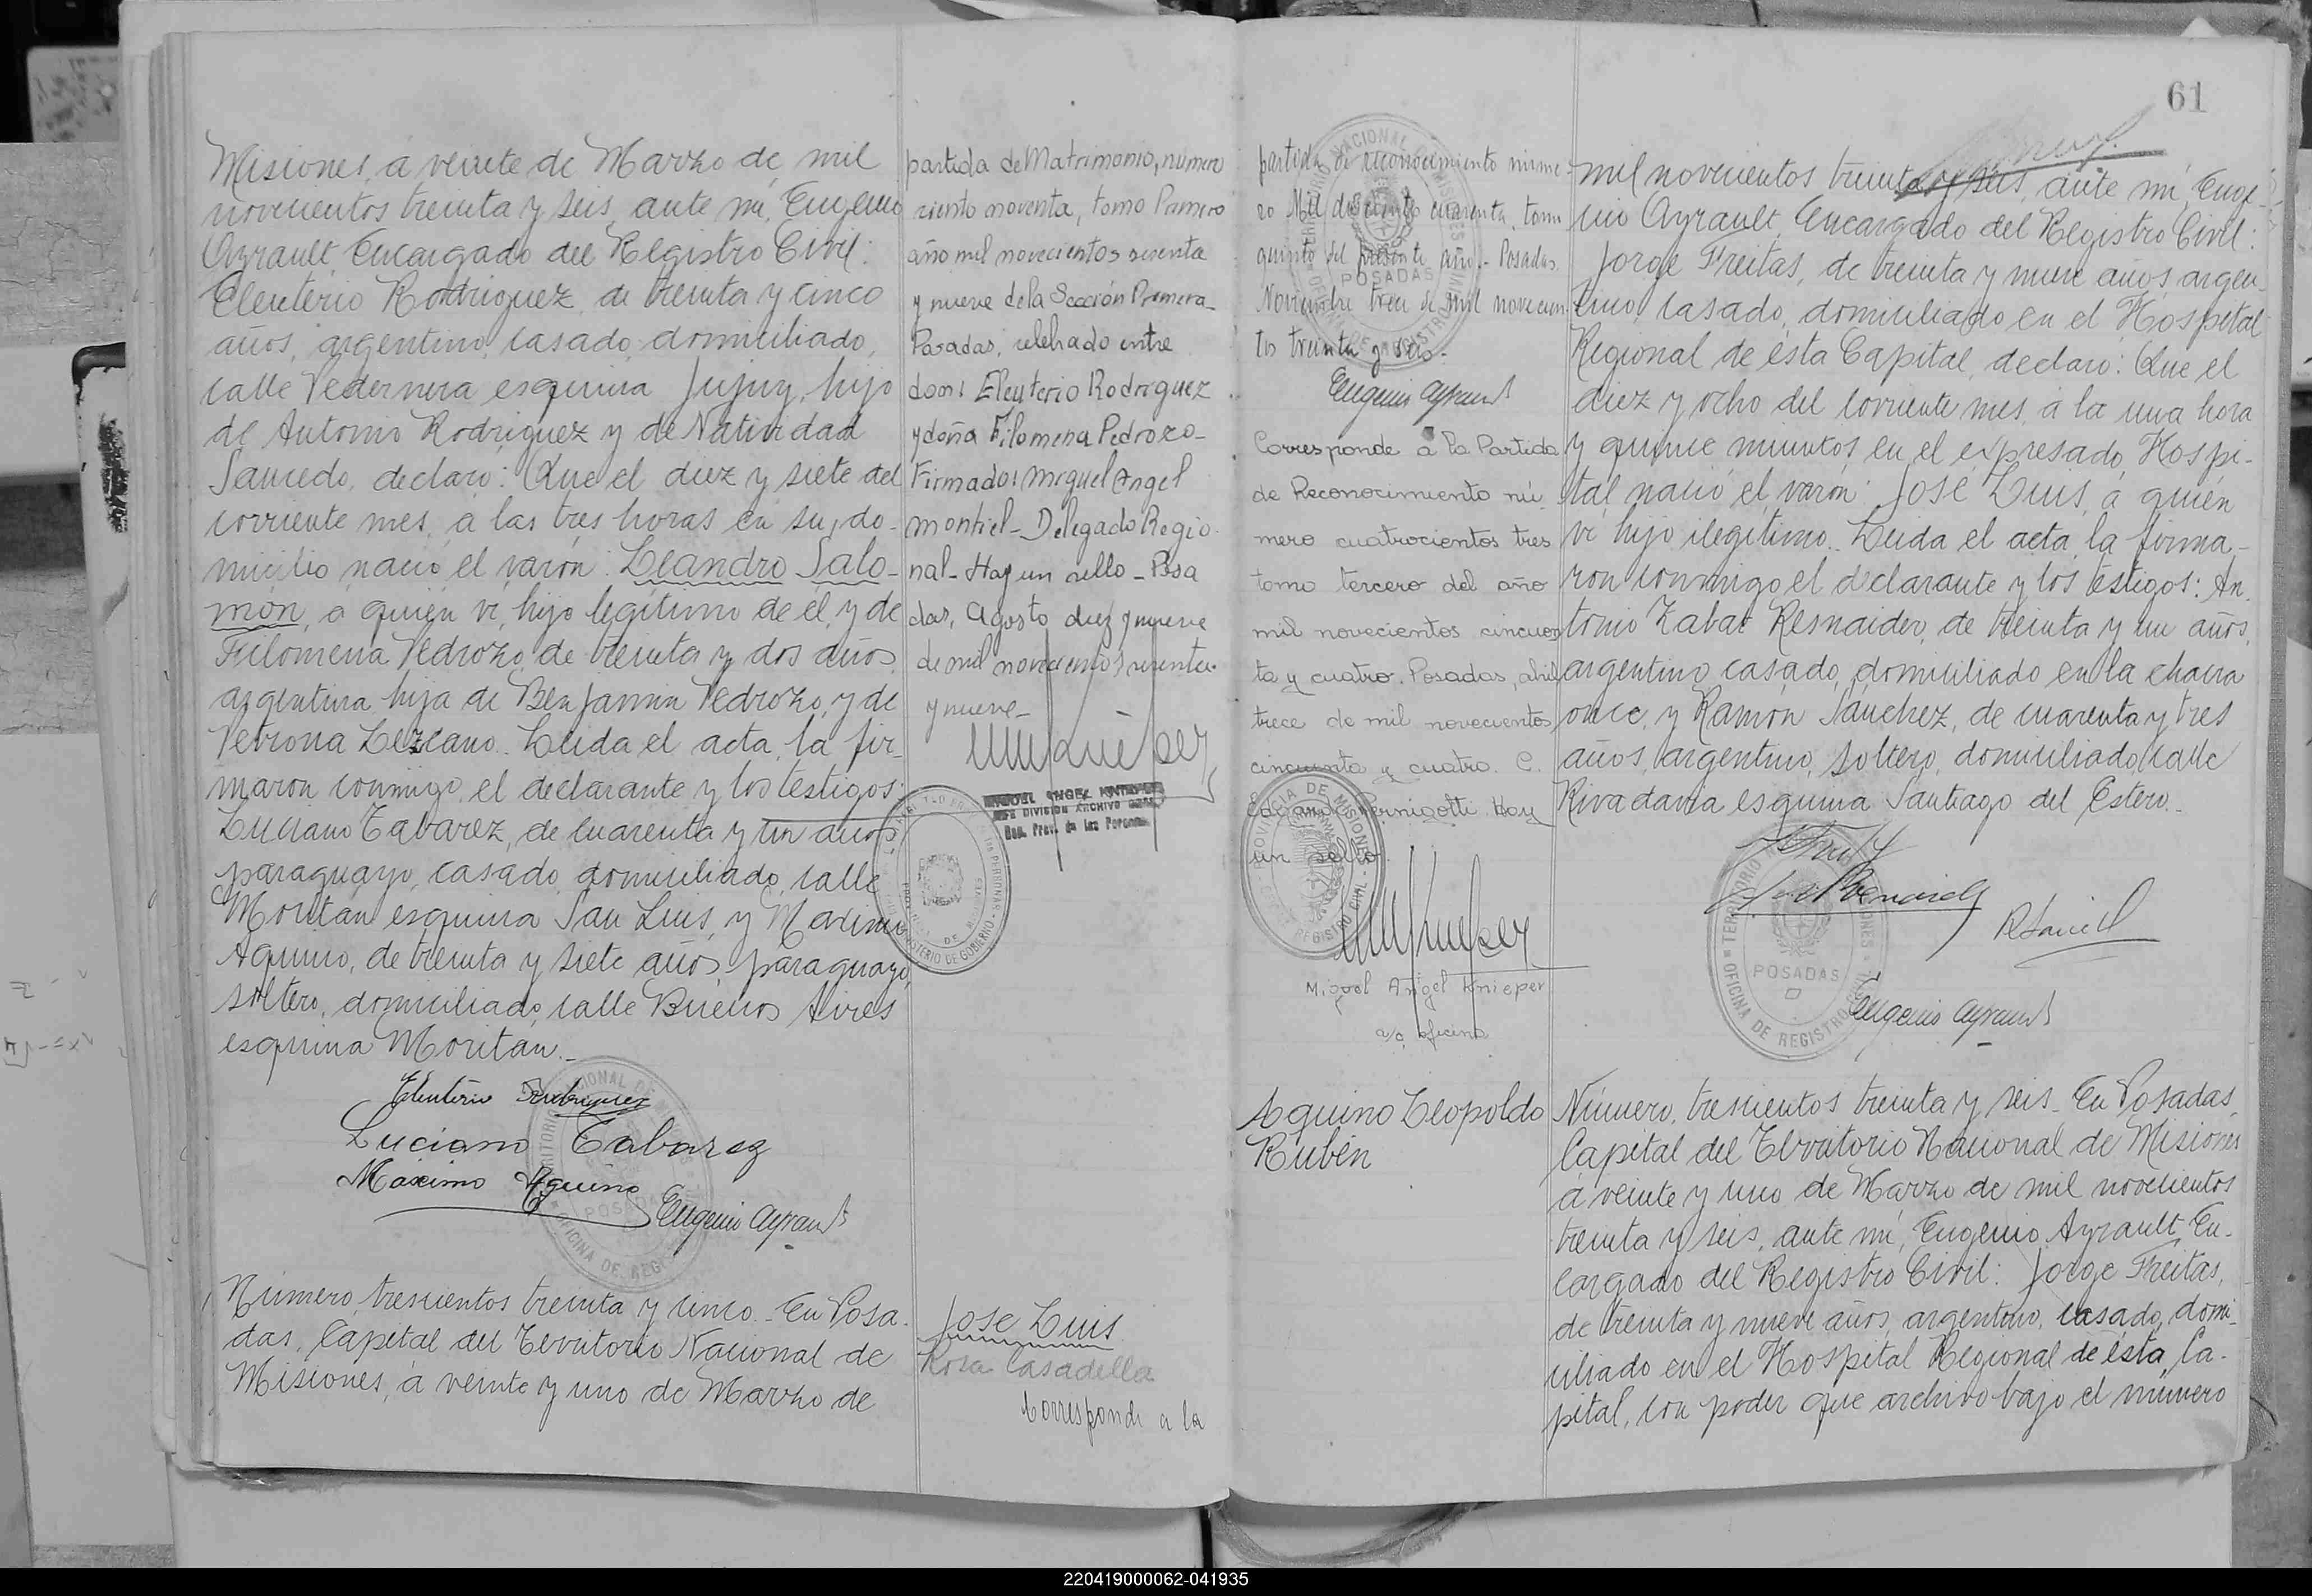 Misiones, á veinte de Marzo de mil
novecientos treinta y seis, ante mi, Eugenio
Ayrault, Encargado del Registro Civil:
Eleuterio Rodriguez, de treinta y cinco
años, argentino, casado, domiciliado,
calle Pedernera esquina Jujuy, hijo
de Antonio Rodriguez y de Natividad
Saucedo, declaró: Que el diez y siete del
corriente mes, a las tres horas en su, do-
micilio nació el varón: Leandro Salo-
món, á quién vi, hijo legítimo de él, y de
Filomena Pedrozo, de treinta y dos años,
argentina, hija de Benjamin Pedrozo, y de
Petrona Lezcano. Leida el acta, la fir-
maron conmigo, el declarante y los testigos:
Luciano Tabarez, de cuarenta y un años,
paraguayo, casado, domiciliado, calle
Moritán esquina San Luis, y Maximo
Aquino, de treinta y siete años, paraguayo,
soltero, domiciliado, calle Buenos Aires
esquina Moritan.-
Eleuterio Rodriguez
Luciano Tabarez
Maximo Aquino
Eugenio Ayrault
Número, trescientos treinta y cinco.- En Posa-
das, Capital del Territorio Nacional de
Misiones, á veinte y uno de Marzo de
partida de Matrimonio, número
ciento noventa, tomo Primero
año mil novecientos sesenta
y nueve de la Sección Primera-
Posadas, celebrado entre
don: Eleuterio Rodriguez
y doña Filomena Pedrozo-
Firmado: Miguel Angel
Montiel- Delegado Regio-
nal- Hay un sello- Posa
das, Agosto diez y nueve
de mil novecientos sesenta
y nueve-
Jose Luis
Rosa Casadella
Corresponde a la
61
partida de reconocimiento núme-
ro Mil doscientos cuarenta, tomo
quinto del presente año.- Posadas
Noviembre trece de mil novecien
tos treinta y seis.-
Eugenio Ayrault
POSADAS
Corresponde a la Partida
de Reconocimiento nú-
mero cuatrocientos tres
tomo tercero del año
mil novecientos cincuen
ta y cuatro. Posadas, abril
trece de mil novecientos
cincuenta y cuatro. C.
Edgardo Pernigotti. Hay
un sello.
Miguel Angel Knieper
a/c oficina
Aquino Leopoldo
Rubén
mil novecientos treinta y seis, ante mi, Euge-
nio Ayrault, Encargado del Registro Civil:
Jorge Freitas, de treinta y nueve años, argen-
tino, casado, domiciliado en el Hospital
Regional de ésta Capital, declaró: Que el
diez y ocho del corriente mes, á la una hora
y quince minutos en el expresado, Hospi-
tal, nació el, varón: José Luis, á quién
vi hijo ilegítimo. Leida el acta, la firma-
ron conmigo el declarante y los testigos: An-
tonio Zabat Resnaider, de treinta y un años,
argentino, casado, domiciliado en la chacra
once, y Ramón Sánchez, de cuarenta y tres
años, argentino, soltero, domiciliado, calle
Rivadavia esquina Santiago del Estero.-
POSADAS
Eugenio Ayrault
Número, trescientos treinta y seis.- En Posadas,
Capital del Territorio Nacional de Misiones
á veinte y uno de Marzo de mil novecientos
treinta y seis, ante mi, Eugenio Ayrault, En-
cargado del Registro Civil: Jorge Freitas,
de treinta y nueve años, argentino, casado, domi-
ciliado en el Hospital Regional de ésta, Ca-
pital, con poder que archivo bajo el número
220419000062-041935